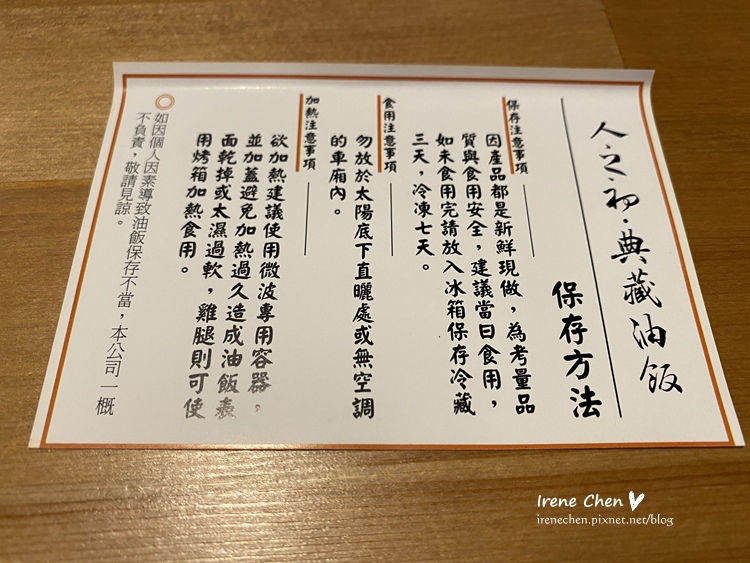 人之初·典藏油飯
保存方法
保存注意事項
因產品都是新鮮現做，為考量品
質與食用安全，建議當日食用，
如未食用完請放入冰箱保存冷藏
三天，冷凍七天。
食用注意事項
勿放於太陽底下直曬處或無空調
的車廂內。
加熱注意事項
欲加熱建議使用微波專用容器，
並加蓋避免加熱過久造成油飯表
面乾掉或太濕過軟，雞腿則可使
用烤箱加熱食用。
如因個人因素導致油飯保存不當，本公司一概
不負責，敬請見諒。
Irene Chen
irenechen.pixnet.net/blog